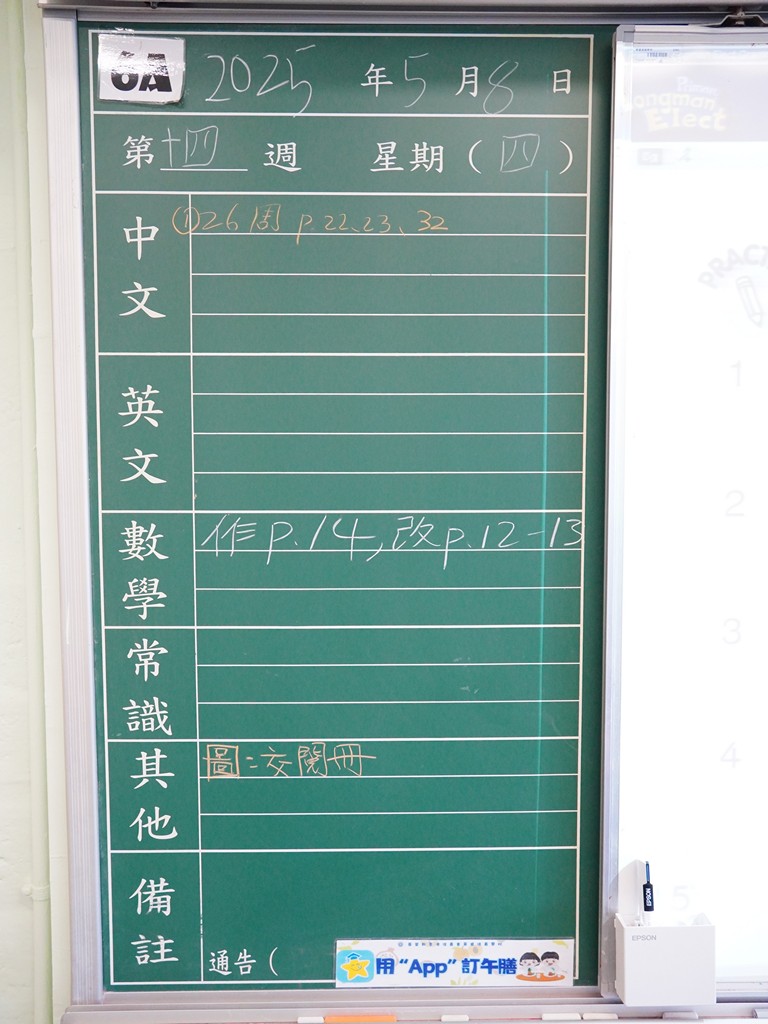 6A 2025 年 5 月 8 日
第 十四 週 星期 ( 四 )
中文 ① 26周 p.22、23、32
英文
數學 作 p.14, 改 p.12-13
常識
其他 圖:交閱冊
備註
通告 (
用 “App” 訂午膳
Primary
Longman
Elect
PRACT
1
2
3
4
5
EPSON
EPSON